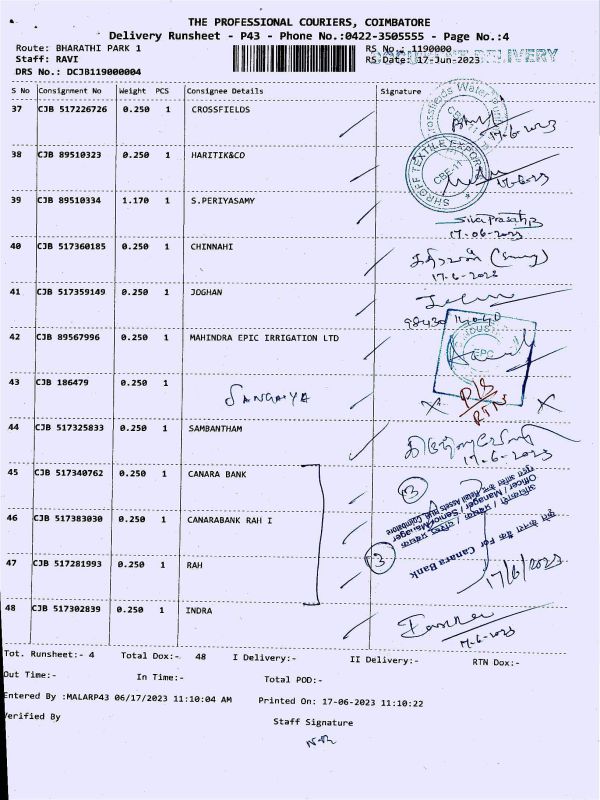 THE PROFESSIONAL COURIERS, COIMBATORE
Delivery Runsheet - P43 - Phone No.:0422-3505555 - Page No.:4
Route: BHARATHI PARK 1 RS No.: 1190000
Staff: RAVI RS Date: 17-Jun-2023
DRS No.: DCJB119000004
S No Consignment No Weight PCS Consignee Details Signature
37 CJB 517226726 0.250 1 CROSSFIELDS
17-6-2023
38 CJB 89510323 0.250 1 HARITIK&CO
SHROFF TEXTILE EXPORT
CBE-11
17-6-2023
39 CJB 89510334 1.170 1 S.PERIYASAMY
17-06-2023
40 CJB 517360185 0.250 1 CHINNAHI
17-6-2023
41 CJB 517359149 0.250 1 JOGHAN
42 CJB 89567996 0.250 1 MAHINDRA EPIC IRRIGATION LTD
EPC
43 CJB 186479 0.250 1 SANGAIYA X P/S X
RTN
44 CJB 517325833 0.250 1 SAMBANTHAM
17-6-2023
45 CJB 517340762 0.250 1 CANARA BANK
3
46 CJB 517383030 0.250 1 CANARABANK RAH I
For Canara Bank
Officer / Manager / Senior Manager
Retail Assets Hub, Coimbatore
47 CJB 517281993 0.250 1 RAH
3 17/6/2023
48 CJB 517302839 0.250 1 INDRA
17-6-2023
Tot. Runsheet:- 4 Total Dox:- 48 I Delivery:- II Delivery:- RTN Dox:-
Out Time:- In Time:- Total POD:-
Entered By :MALARP43 06/17/2023 11:10:04 AM Printed On: 17-06-2023 11:10:22
Verified By Staff Signature